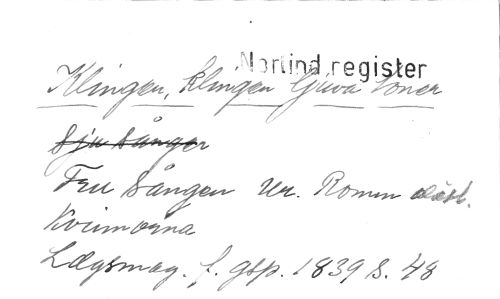 Nortind. register
Klingen, klingen Ljuva toner
Sju sånger
Fru sången ur. Romm
Kvinnorna
Lægsmag. f. gsp. 1839 S. 48